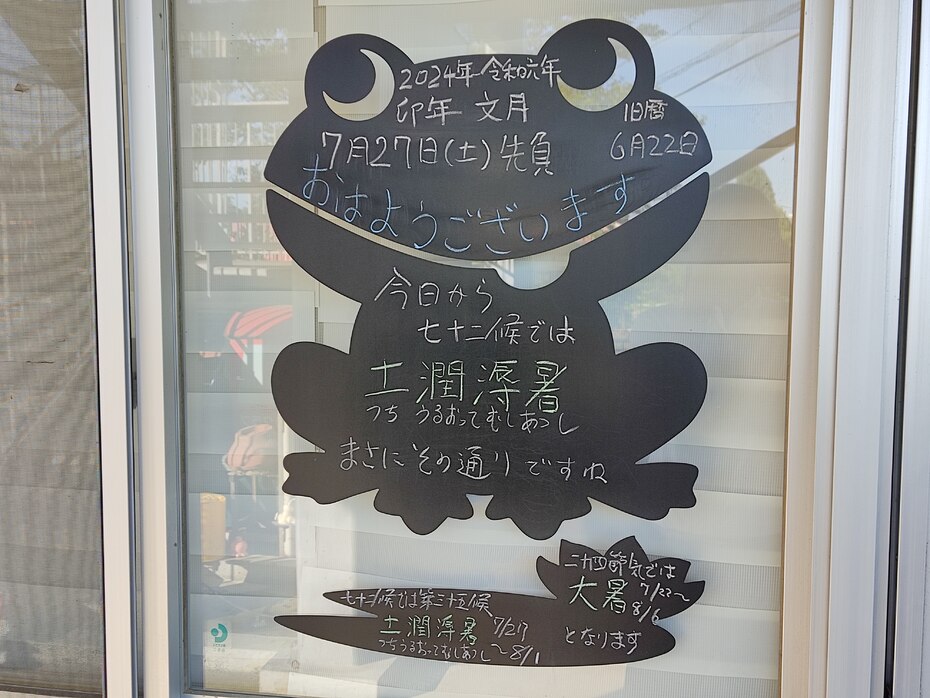 2024年 令和六年
卯年 文月
旧暦
7月27日(土)先負
6月22日
おはようございます
今日から
七十二候では
土潤溽暑
つち うるおってむしあつし
まさにその通りですね
二十四節気では
大暑 7/22～
8/6
となります
七十二候では第三十五候
土潤溽暑 7/27
つちうるおってむしあつし ～8/1